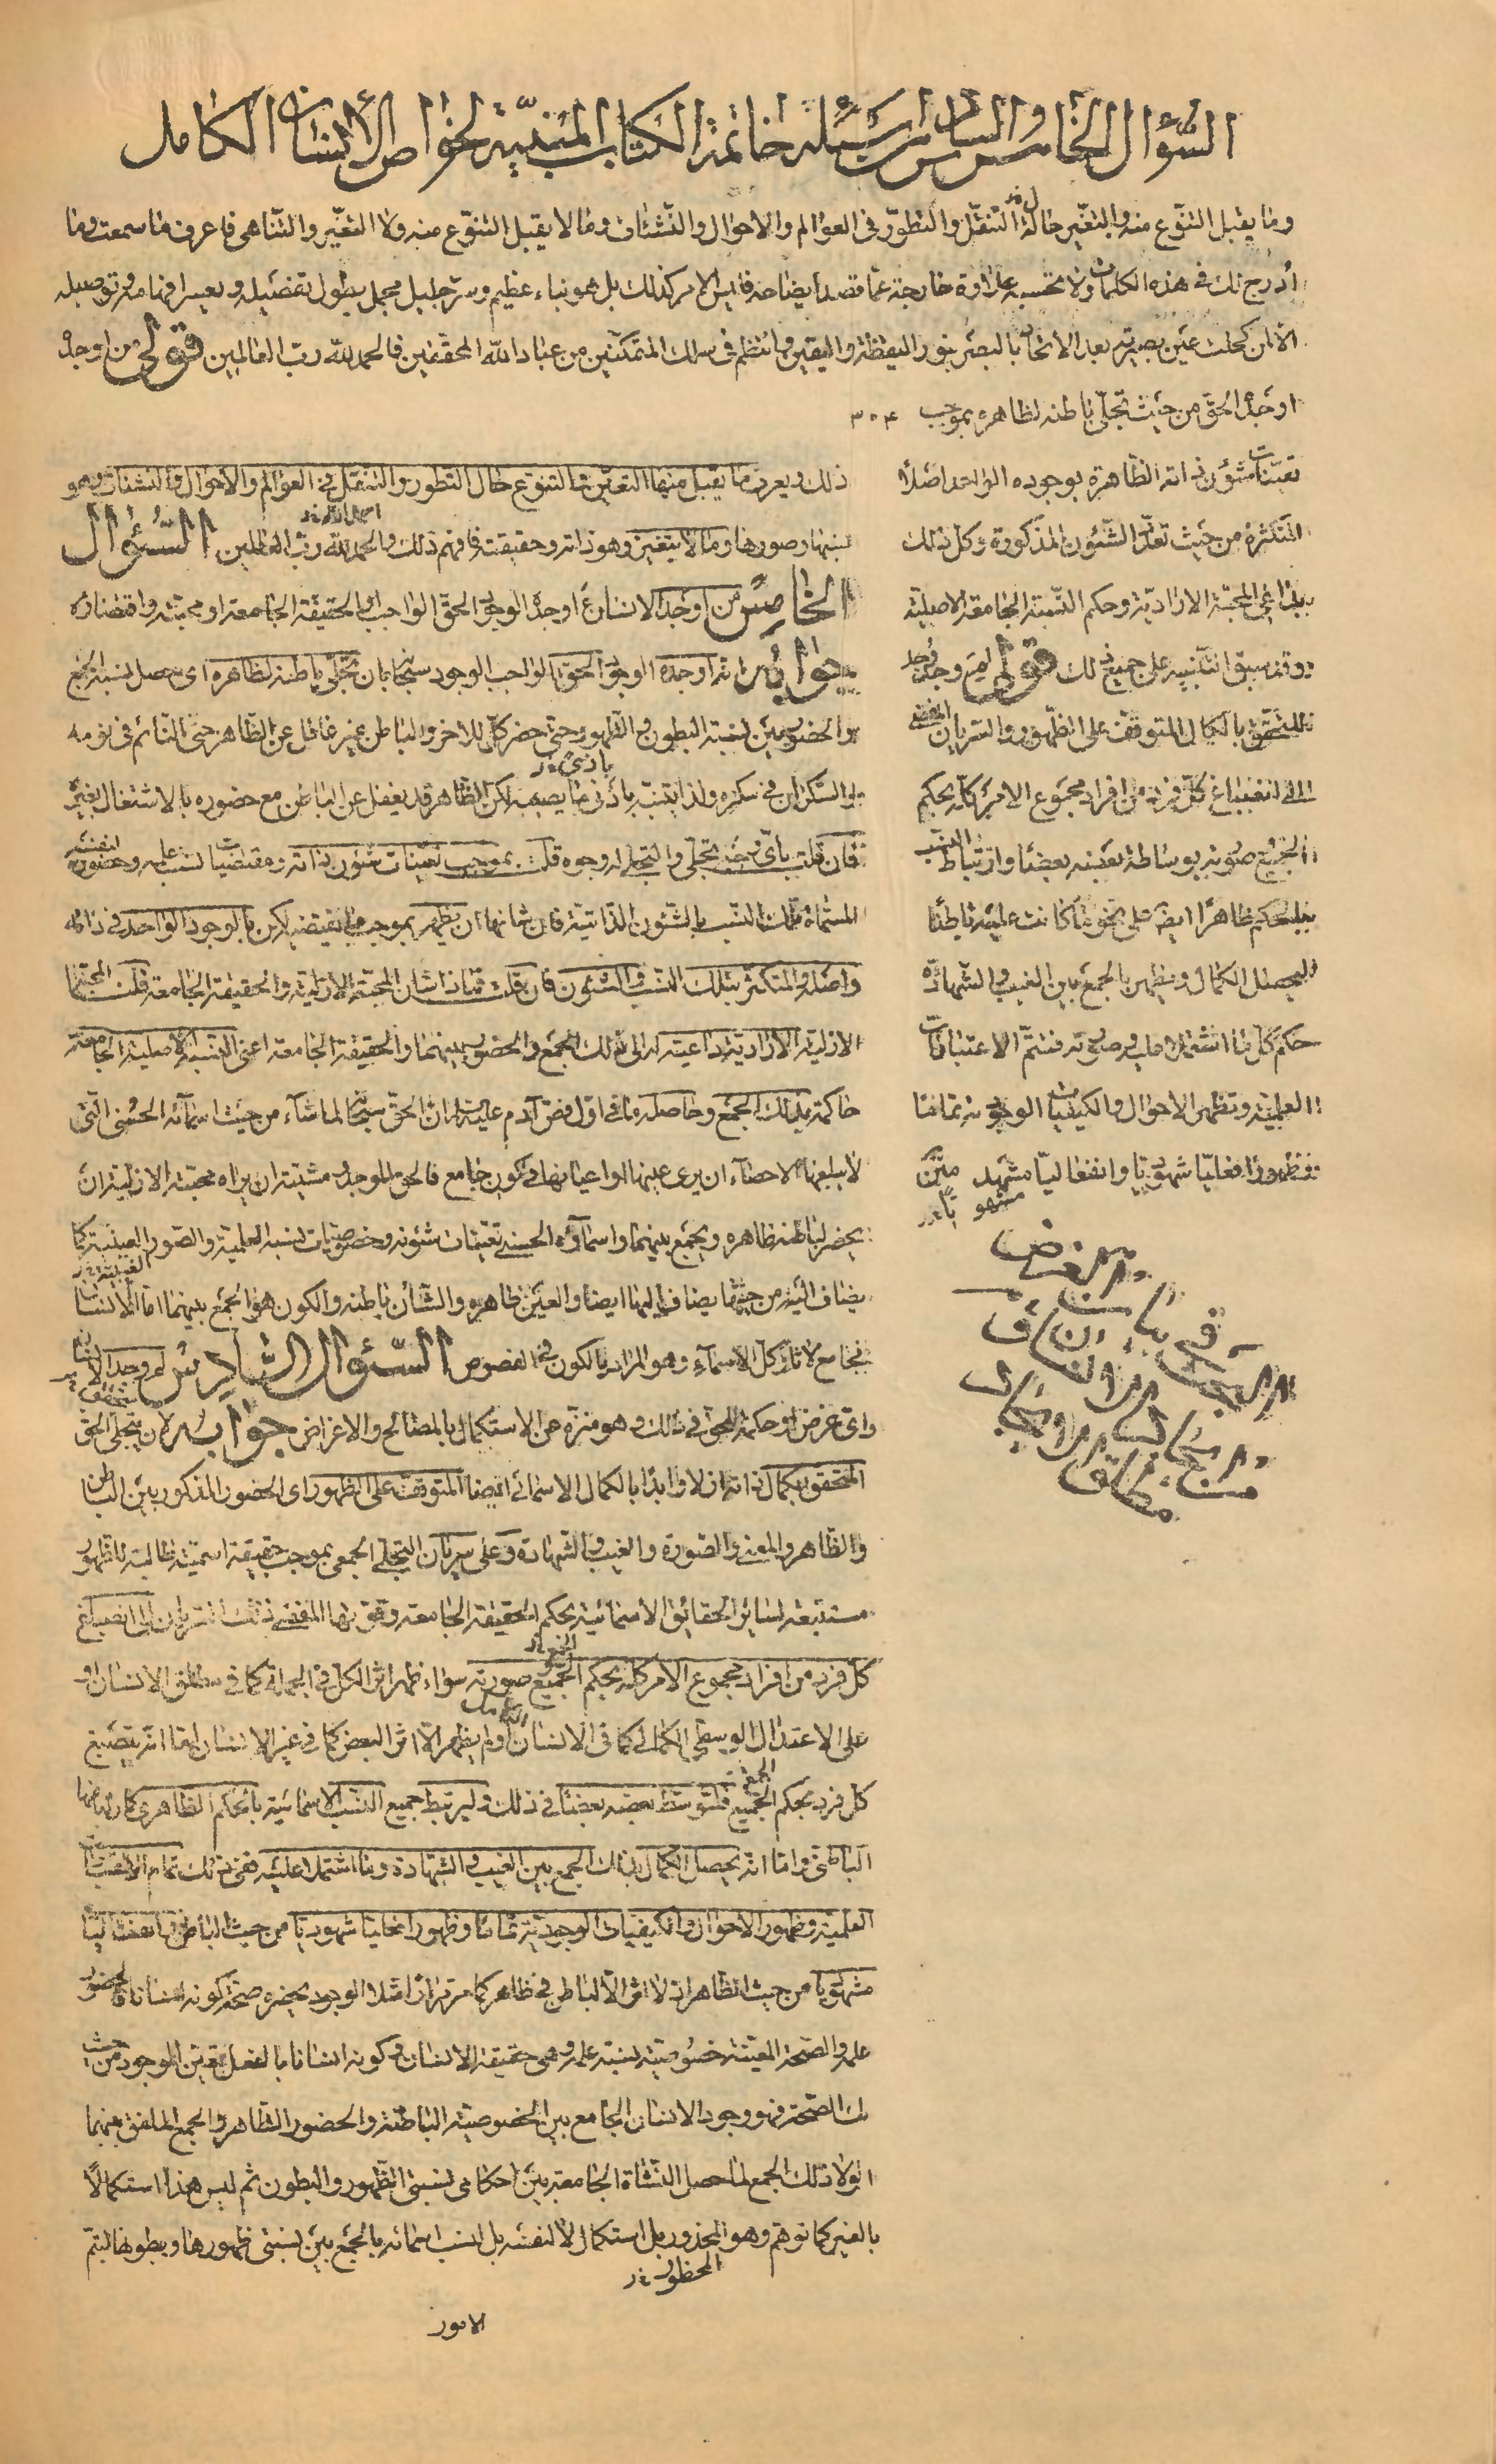 السؤال الخامس والسادس من اسئلة خاتمة الكتاب المنبئة لخواص الانسان الكامل
وما يقبل التنوع منه والتغير حالة التنقل والتطور فى العوالم والاحوال والنشئات وما لا يقبل التنوع منه ولا التغير والتناهى فاعرف ما سمعت وما
ادرج لك فى هذه الكلمات ولا تحسبه علاوة خارجة عما قصد ايضاحه فليس الامر كذلك بل هو نباء عظيم وسر جليل مجمل يطول تفصيله ويعسر افهامه وتوصيله
الا لمن كحلت عين بصيرته بعد الانتحاء بالبصر بنور اليقظة واليقين وانتظم فى سلك المتمكنين من عباد الله المحققين فالحمد لله رب العالمين قوله من اوجده
اوجده الحق من حيث تجلى باطنه لظاهره بموجب ٣٠٤
تعينات شؤون ذاته الظاهرة بوجوده الواحد اصلا
المتكثرة من حيث تعدد الشئون المذكورة وكل ذلك
بداعى المحبة الارادية وحكم النسبة الجامعة الاصلية
وقد سبق التنبيه على جميع ذلك قوله لم وجد وجد
للتحقق بالكمال المتوقف على الظهور والسريان المفضى
الى انصباغ كل فرد من افراد مجموع الامر كله بحكم
الجميع صورته بوساطة بعضه بعضا وارتباط النسب
بالحكم ظاهرا ايضا على نحو ما كانت عليه باطنا
ليحصل الكمال ويظهر بالجمع بين الغيب والشهادة
حكم كل ما اشتملا عليه وصورته فتتم الاعتبارات
العلمية وتظهر الاحوال والكيفيات الوجودية تماما
وظهورا فعليا شهوديا وانفعاليا مشهد
مشهوديا
فى بيان الغرض
ذلك ويعرف ما يقبل منها التعين بالتنوع حال التطور والتنقل فى العوالم والاحوال والنشئات وهو
نسبها وصورها وما لا يتغير وهو ذاته وحقيقته فافهم ذلك والحمد لله رب العالمين السؤال
الخامس من اوجد الانسان اوجده الوجود الحق الواجب او الحقيقة الجامعة او محبته واقتضاؤه
جوابه انه اوجده الوجود الحق الواجب الوجود سبحانه بان تجلى باطنه لظاهره اى حصل نسبة الجمع
والحضور بين نسبة البطون والظهور حتى حضر كل للاخر والباطن غير غافل عن الظاهر حتى النائم فى نومه
والسكران فى سكره ولذا يتنبه بادنى ما يصيبه لكن الظاهر قد يغفل عن الباطن مع حضوره بالاشتغال بغيره
فان قلت باى وجه تجلى والتجلى له وجوه قلت بموجب تعينات شئون ذاته ومقتضيات نسب علمه وحضوره لنفسه
المسماة تلك النسب بالشئون الذاتية فان شانها ان يظهر بموجب ما يقتضيه لكن بالوجود الواحد فى ذاته
واصله والمتكثر بتلك النسب والشئون فان قلت فماذا شان المحبة الازلية والحقيقة الجامعة قلت المحبة
الازلية الارادية داعية له الى ذلك الجمع والحضور بينهما والحقيقة الجامعة اعنى النسبة الاصلية الجامعة
حاكمة بذلك الجمع وحاصله ما فى اول فص آدم عليه السلام ان الحق سبحانه لما شاء من حيث اسمائه الحسنى التى
لا يبلغها الاحصاء ان يرى عينها او اعيانها فى كون جامع فالحق الموجد ومشيئته ان يراه محبته الازلية ان
يحضر لباطنه ظاهره ويجمع بينهما واسماؤه الحسنى تعينات شئونه وخصوصيات نسبه العلمية والصور العينية كما
يضاف اليه من حيثها يضاف اليها ايضا والعين ظاهره والشأن باطنه والكون هو الجمع بينهما اما الانسان
فجامع لآثار كل الاسماء وهو المراد بالكون فى الفصوص السؤال السادس لم وجد الانسان
واى غرض او حكمة للحق فى ذلك وهو منزه عن الاستكمال بالمصالح والاغراض جوابه لان يتجلى الحق
المتحقق بكمال ذاته ازلا وابدا بالكمال الاسمائى ايضا المتوقف على الظهور اى الحضور المذكور بين الباطن
والظاهر والمعنى والصورة والغيب والشهادة وعلى سريان التجلى الجمعى بموجب حقيقة اسمية طالبة للظهور
مستتبعة لسائر الحقائق الاسمائية بحكم الحقيقة الجامعة وقوتها المفضى ذلك السريان الى انصباغ
كل فرد من افراد مجموع الامر كله بحكم الجميع صورته سواء ظهر اثر الكل فى الجملة كما فى مطلق الانسان او
على الاعتدال الوسطى الكمالى كما فى الانسان الكامل او لم يظهر الا اثر البعض كما فى غير الانسان اما انه ينصبغ
كل فرد بحكم الجميع فلتوسط بعضه بعضا فى ذلك وليرتبط جميع النسب الاسمائية بالحكم الظاهرى كارتباطها
الباطنى واما انه يحصل الكمال بذلك الجمع بين الغيب والشهادة وما اشتملا عليه ففى ذلك تمام الاعتبارات
العلمية وظهور الاحوال والكيفيات الوجودية تماما وظهورا فعليا شهوديا من حيث الباطن وانفعاليا
مشهوديا من حيث الظاهر اذ لا اثر الا لباطن فى ظاهر كما مر مرارا مثلا الوجود بحضره صحة كونه انسانا والحضور
علمه والصحة المعينة خصوصية نسبة علمه وهى حقيقة الانسان وكونه انسانا بالفعل تعين الوجود من حيث
تلك الصحة فهو وجود الانسان الجامع بين الخصوصية الباطنة والحضور الظاهر والجمع الملفق بينهما
لولا ذلك الجمع لما حصل النشاة الجامعة بين احكام نسبتى الظهور والبطون ثم ليس هذا استكمالا
بالغير كما توهم وهو المحذور بل استكمالا لنفسه بل لنسب اسمائه بالجمع بين نسبتى ظهورها وبطونها ليتم
المحظور
الامور